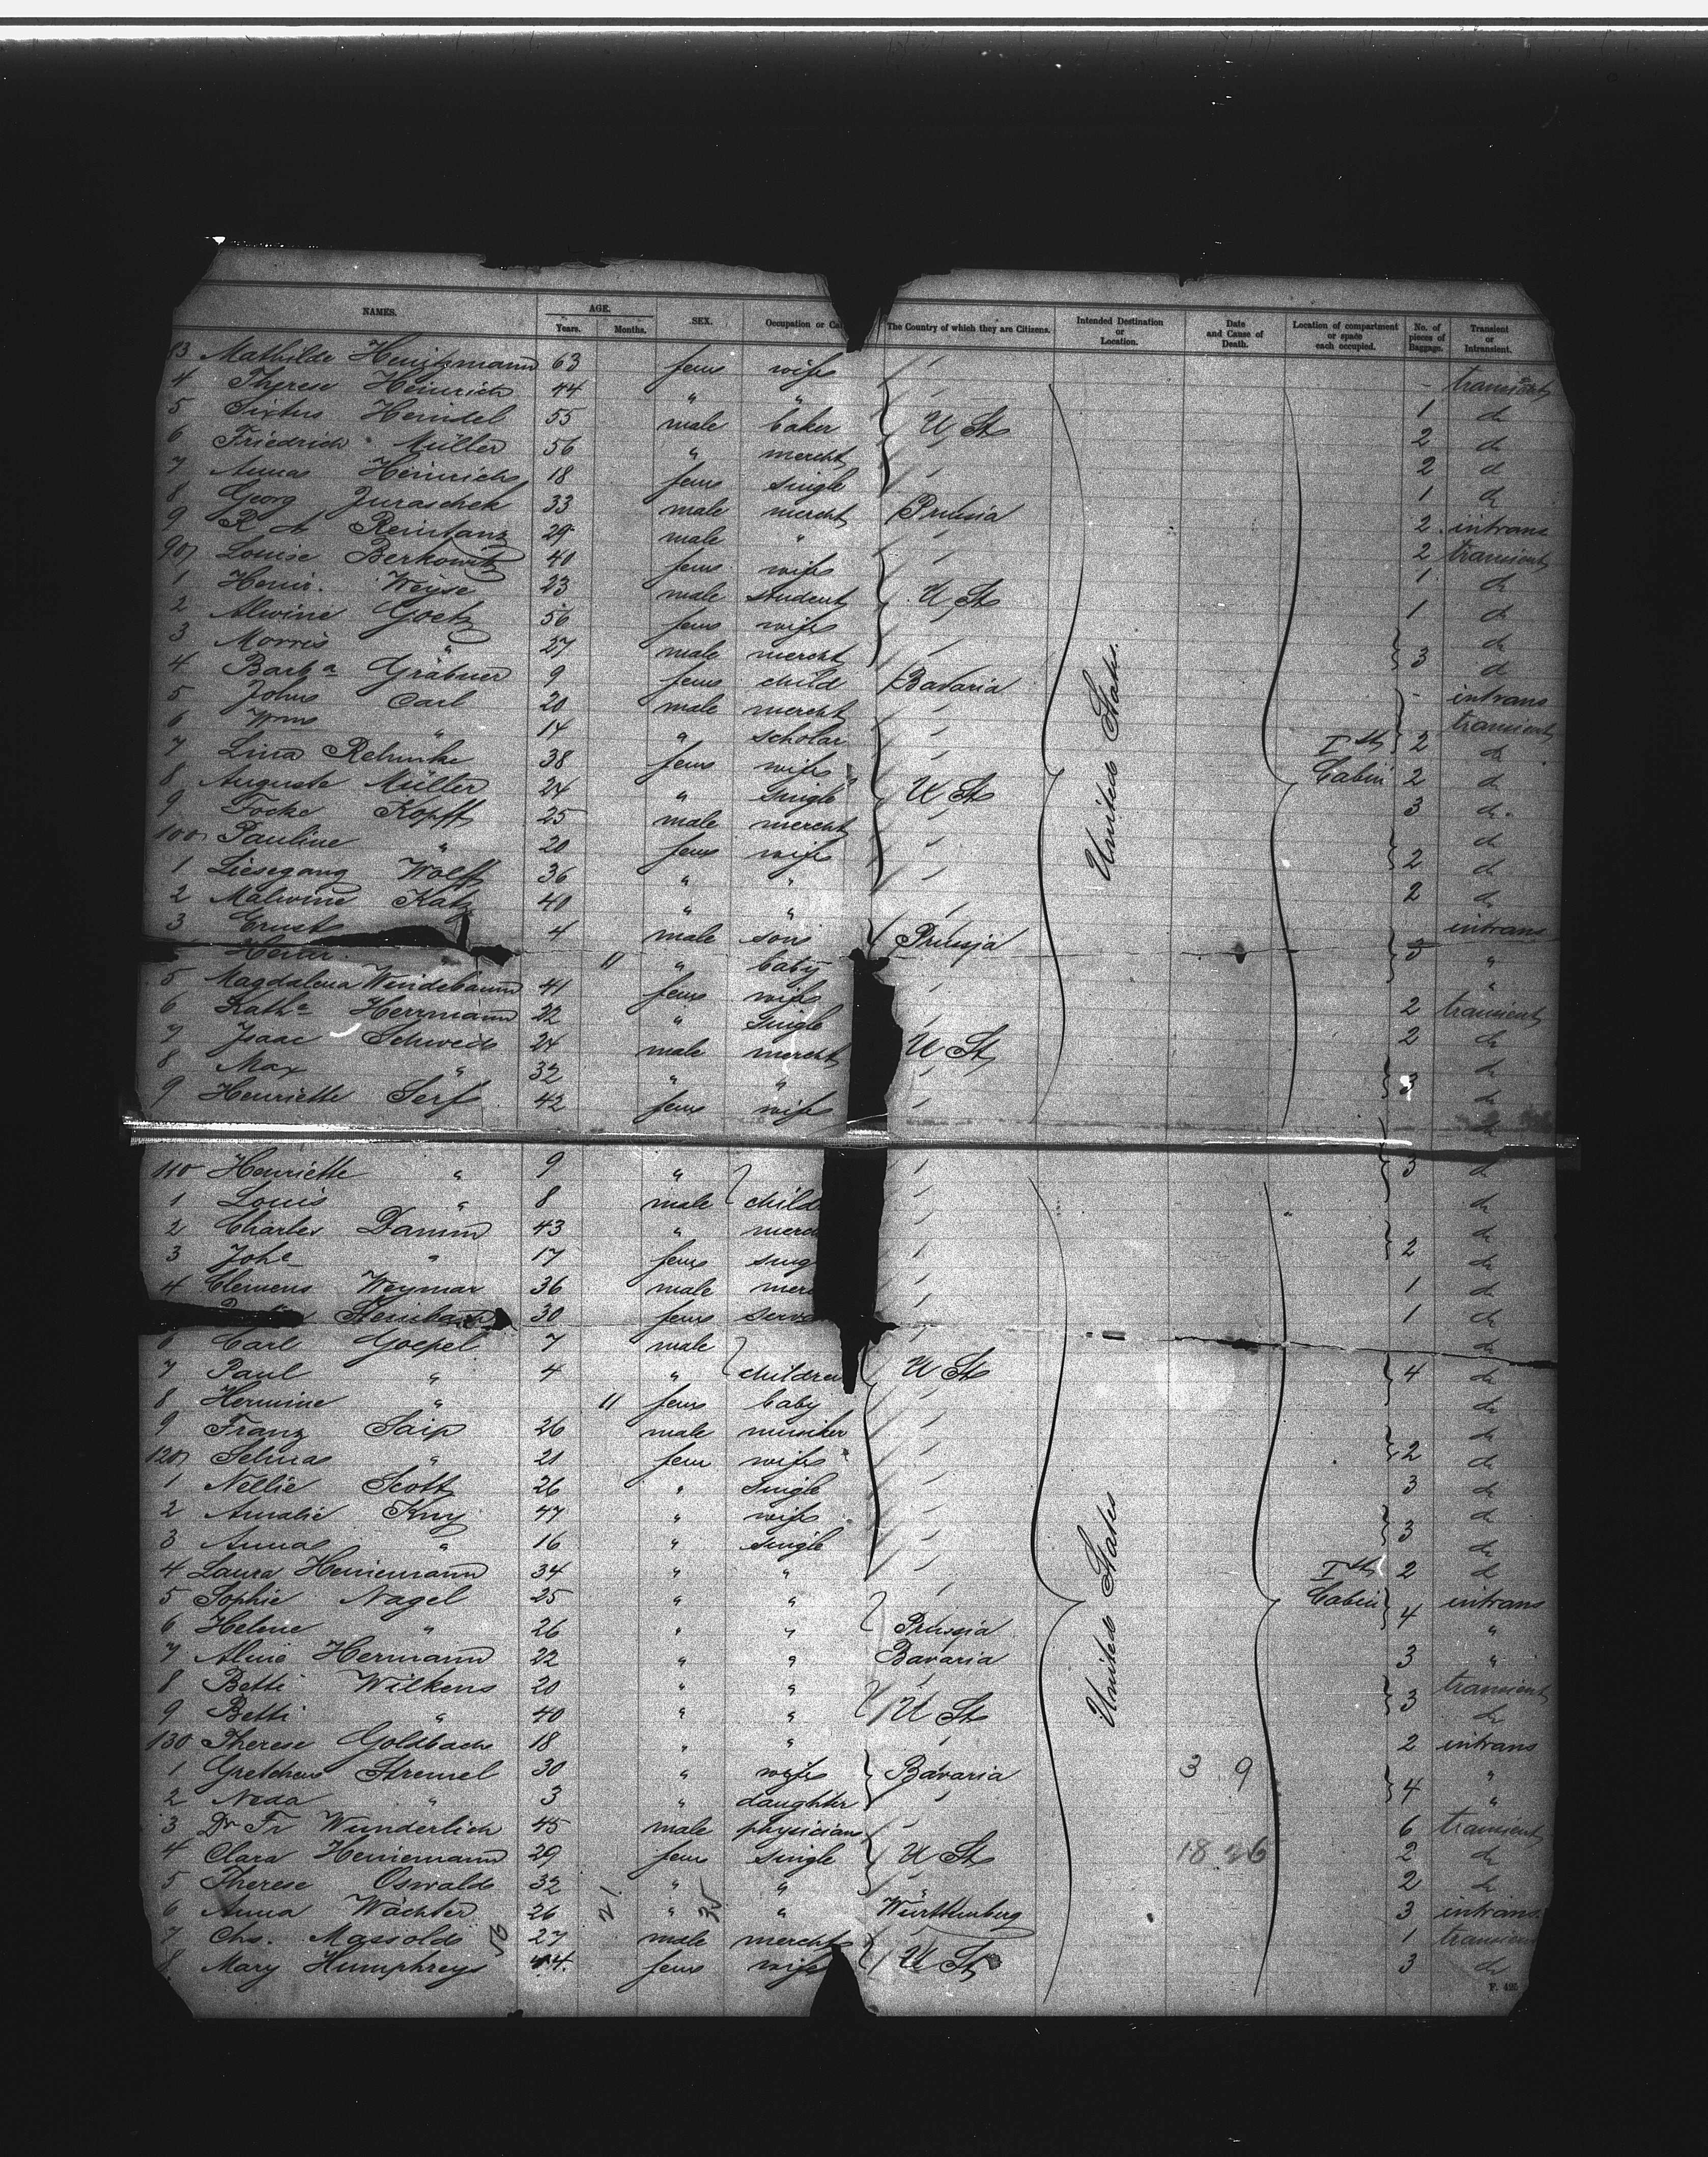 NAMES. AGE. Years. Months. SEX. Occupation or Cal The Country of which they are Citizens. Intended Destination or Location. Date and Cause of Death. Location of compartment or space each occupied. No. of pieces of Baggage. Transient or Intransient.
83 Mathilde 63 fem wife - transient
4 Therese Heinrich 44 " " 1 do
5 Sixtus Hendel 55 male baker U St 2 do
6 Friedrich Müller 56 " mercht 2 do
7 Anna Heinrichs 18 fem single 1 do
8 Georg Juraschek 33 male mercht Prussia 2 intrans
9 R A Reintanz 29 male " 2 transient
90 Louise Berkowitz 40 fem wife 1 do
1 Heinr. Weyse 23 male student U St 1 do
2 Alwine Goetz 56 fem wife do
3 Morris " 27 male mercht 3 do
4 Barba Gräbner 9 fem child Bavaria - intrans
5 John Carl 20 male mercht transient
6 Wm " 14 " scholar 2 do
7 Lina Rehmke 38 fem wife 2 do
8 Auguste Müller 24 " single U St 3 do.
9 Focke Kopff 25 male mercht do
100 Pauline " 20 fem wife 2 do
1 Liesegang Wolff 36 " " 2 do
2 Malwine Katz 40 " " intrans
3 Ernst 4 male son Prussia 3 "
Heinr. 11 " baby "
5 Magdalena Windebaum 41 fem wife 2 transient
6 Katha Herrmann 22 " single 2 do
7 Isaac Schweid 24 male mercht U St do
8 Max " 32 " " 3 do
9 Henriette Serf 42 fem wife do
110 Henriette " 9 " 3 do
1 Louis " 8 male child do
2 Charles Damm 43 " merc do
3 Johe " 17 fem sing 2 do
4 Clemens Weymar 36 male mer 1 do
30 fem serv 1 do
6 Carl Goepel 7 male do
7 Paul " 4 " children U St 4 do
8 Hermine " 11 fem baby do
9 Franz Saip 26 male musiker do
120 Selma " 21 fem wife 2 do
1 Nellie Scott 26 " single 3 do
2 Amalie Kny 47 " wife do
3 Anna " 16 " single 3 do
4 Laura Heinemann 34 " " 2 do
5 Sophie Nagel 25 " " intrans
6 Helene " 26 " " Prussia 4 "
7 Aline Hermann 22 " " Bavaria 3 "
8 Betti Wilkens 20 " " transient
9 Betti " 40 " " U St 3 do
130 Therese Goldbach 18 " " 2 intrans
1 Gretchen Stremel 30 " wife Bavaria 3 9 "
2 Neda " 3 " daughter 4 "
3 Dr Fr Wunderlich 45 male physician 6 transient
4 Clara Heinemann 29 fem single U St 2 do
5 Therese Oswald 32 " " 2 do
6 Anna Wächter 26 " " Württemberg 3 intrans.
7 Chs. Massolds 27 male mercht 1 transient
8 Mary Humphreys 44. fem wife U St 3 do
United States.
Ist Cabin
United States
Ist Cabin